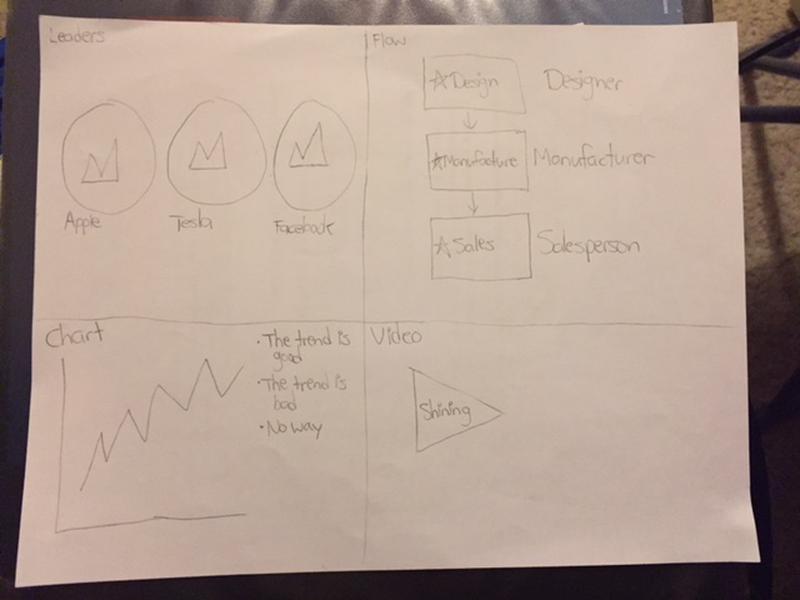 Leaders
Apple
Tesla
Facebook
Flow
☆Design
Designer
☆Manufacture
Manufacturer
☆Sales
Salesperson
Chart
· The trend is
good
· The trend is
bad
· No way
Video
Shining